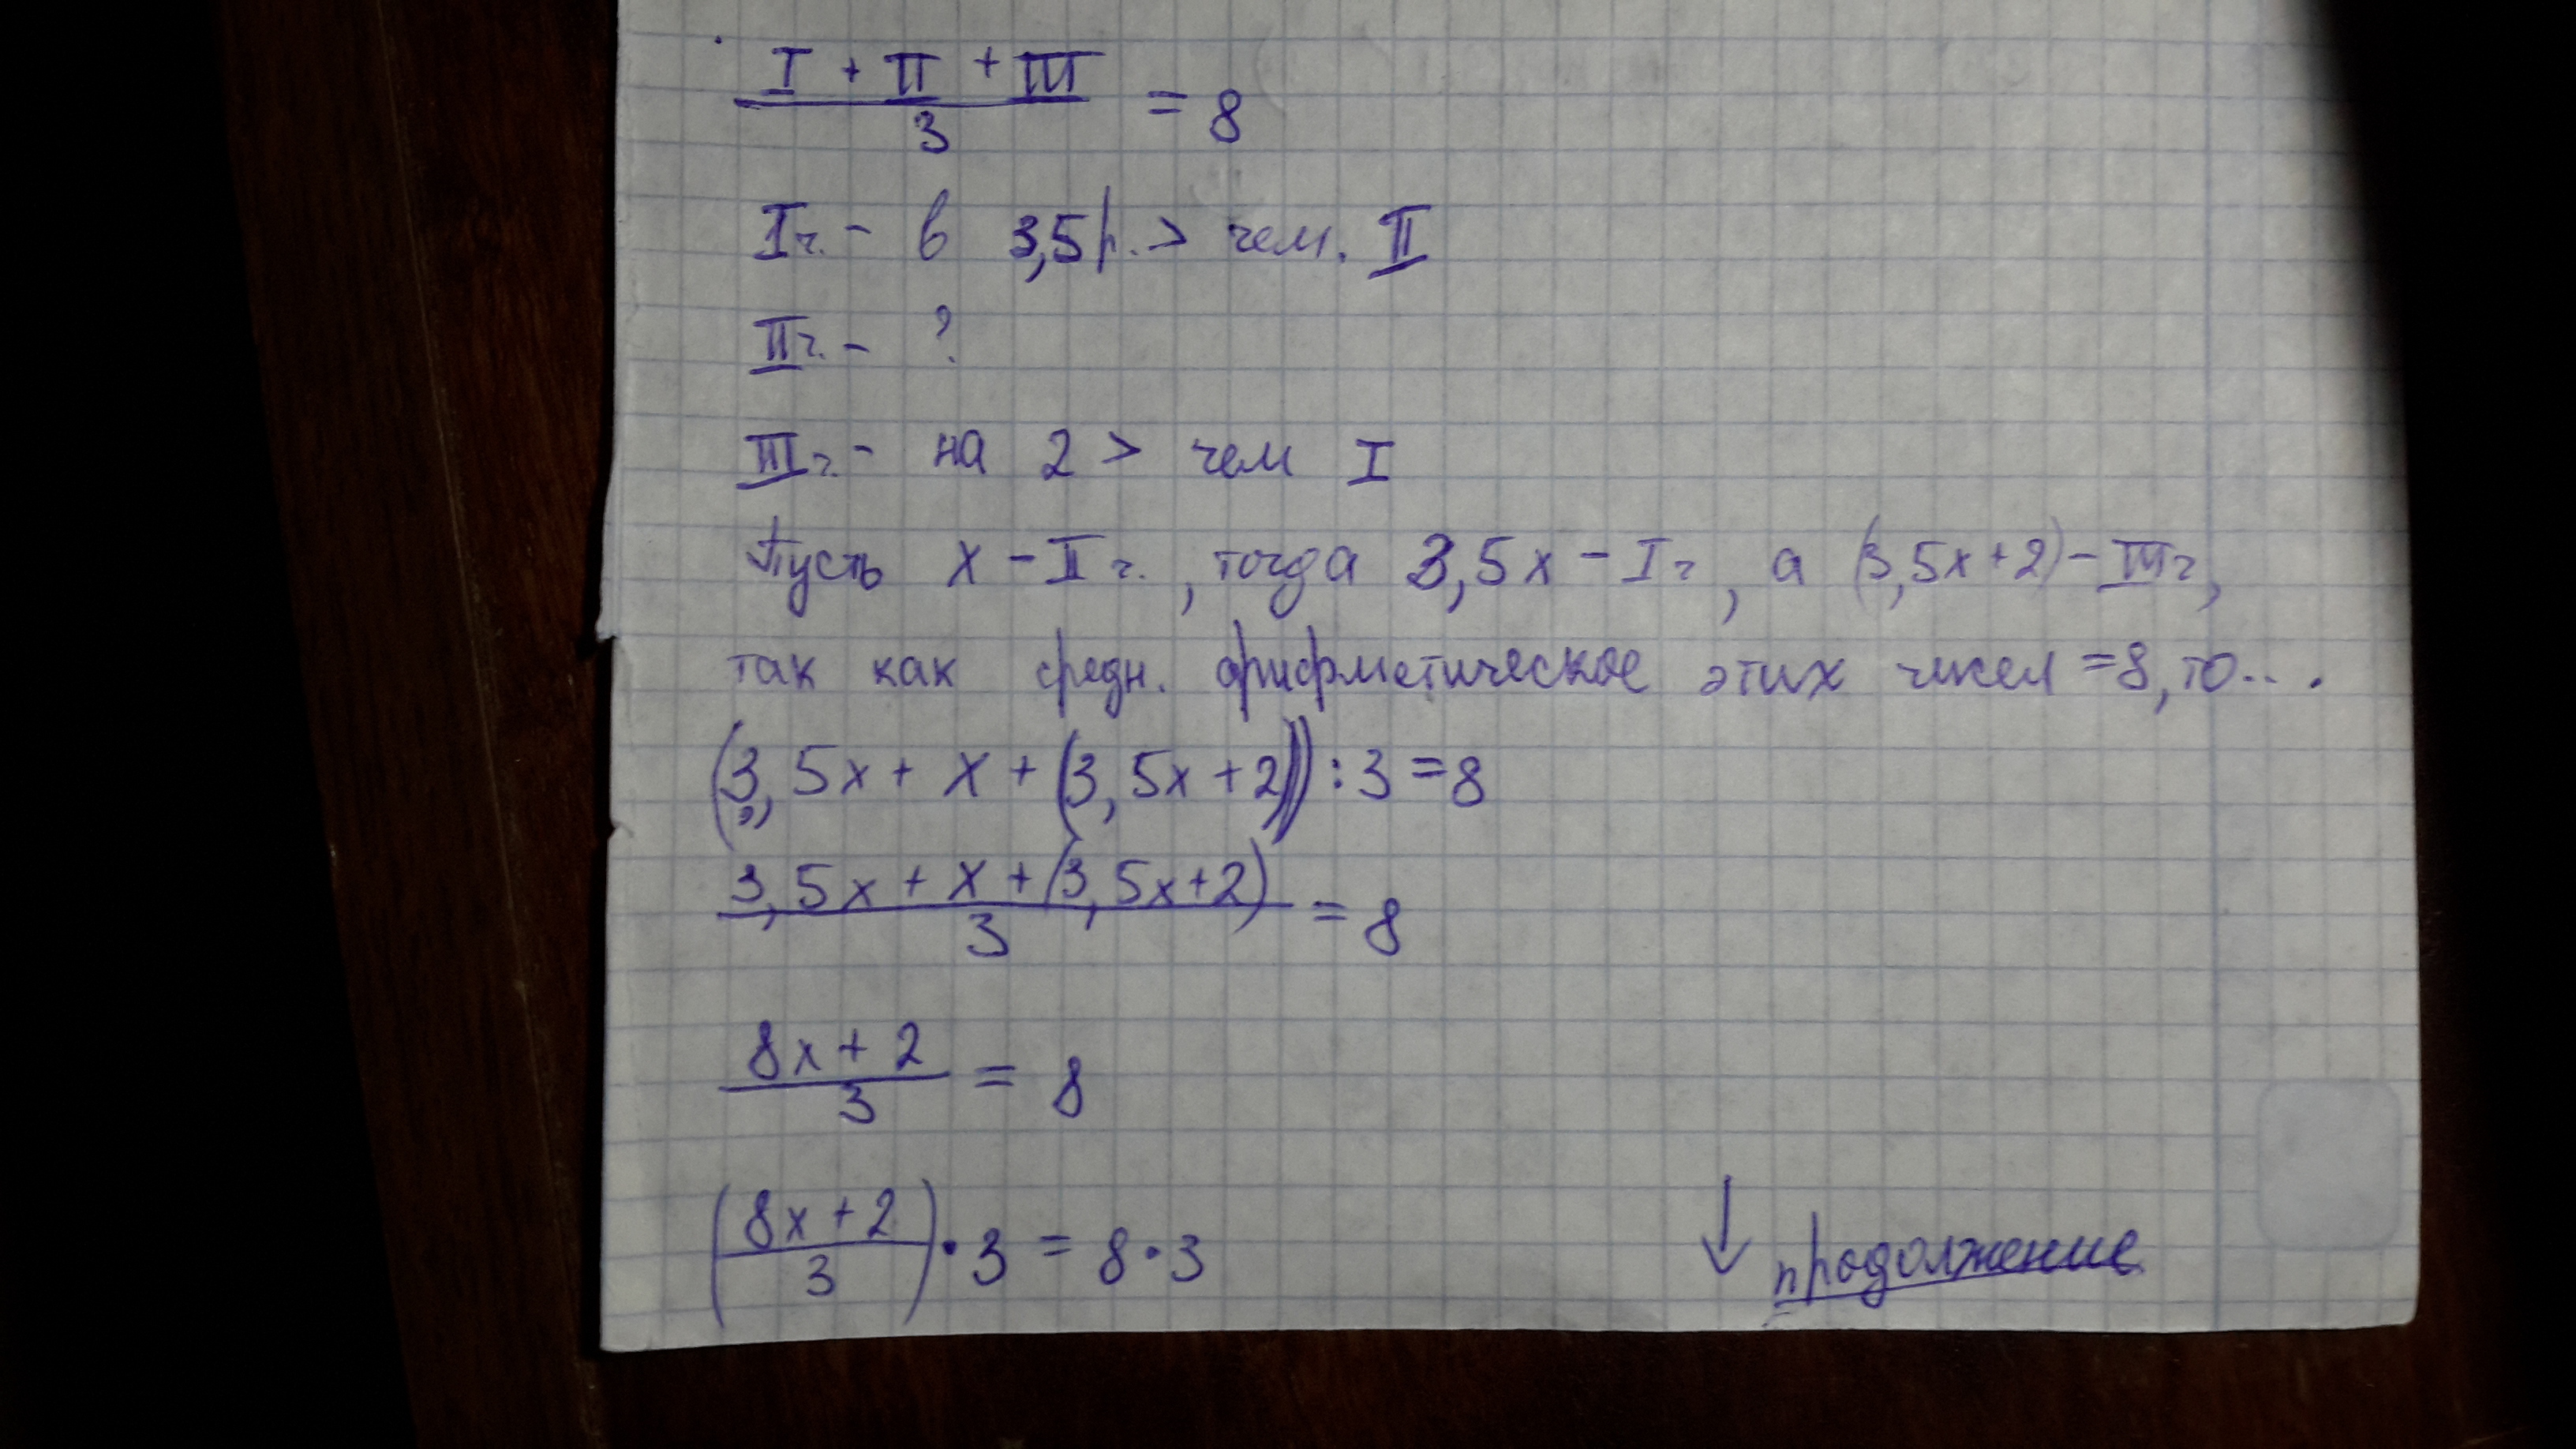 I + II + III
3
= 8
Iч. - в 3,5 р. > чем. II
IIч. - ?
IIIч. - на 2 > чем I
Пусть x - IIч., тогда 3,5x - Iч, а (3,5x+2) - IIIч,
так как средн. арифметическое этих чисел =8, то...
(3,5x + x + (3,5x+2)) : 3 = 8
3,5x + x + (3,5x+2)
3
= 8
8x + 2
3
= 8
(8x + 2
3) · 3 = 8 · 3
↓ продолжение